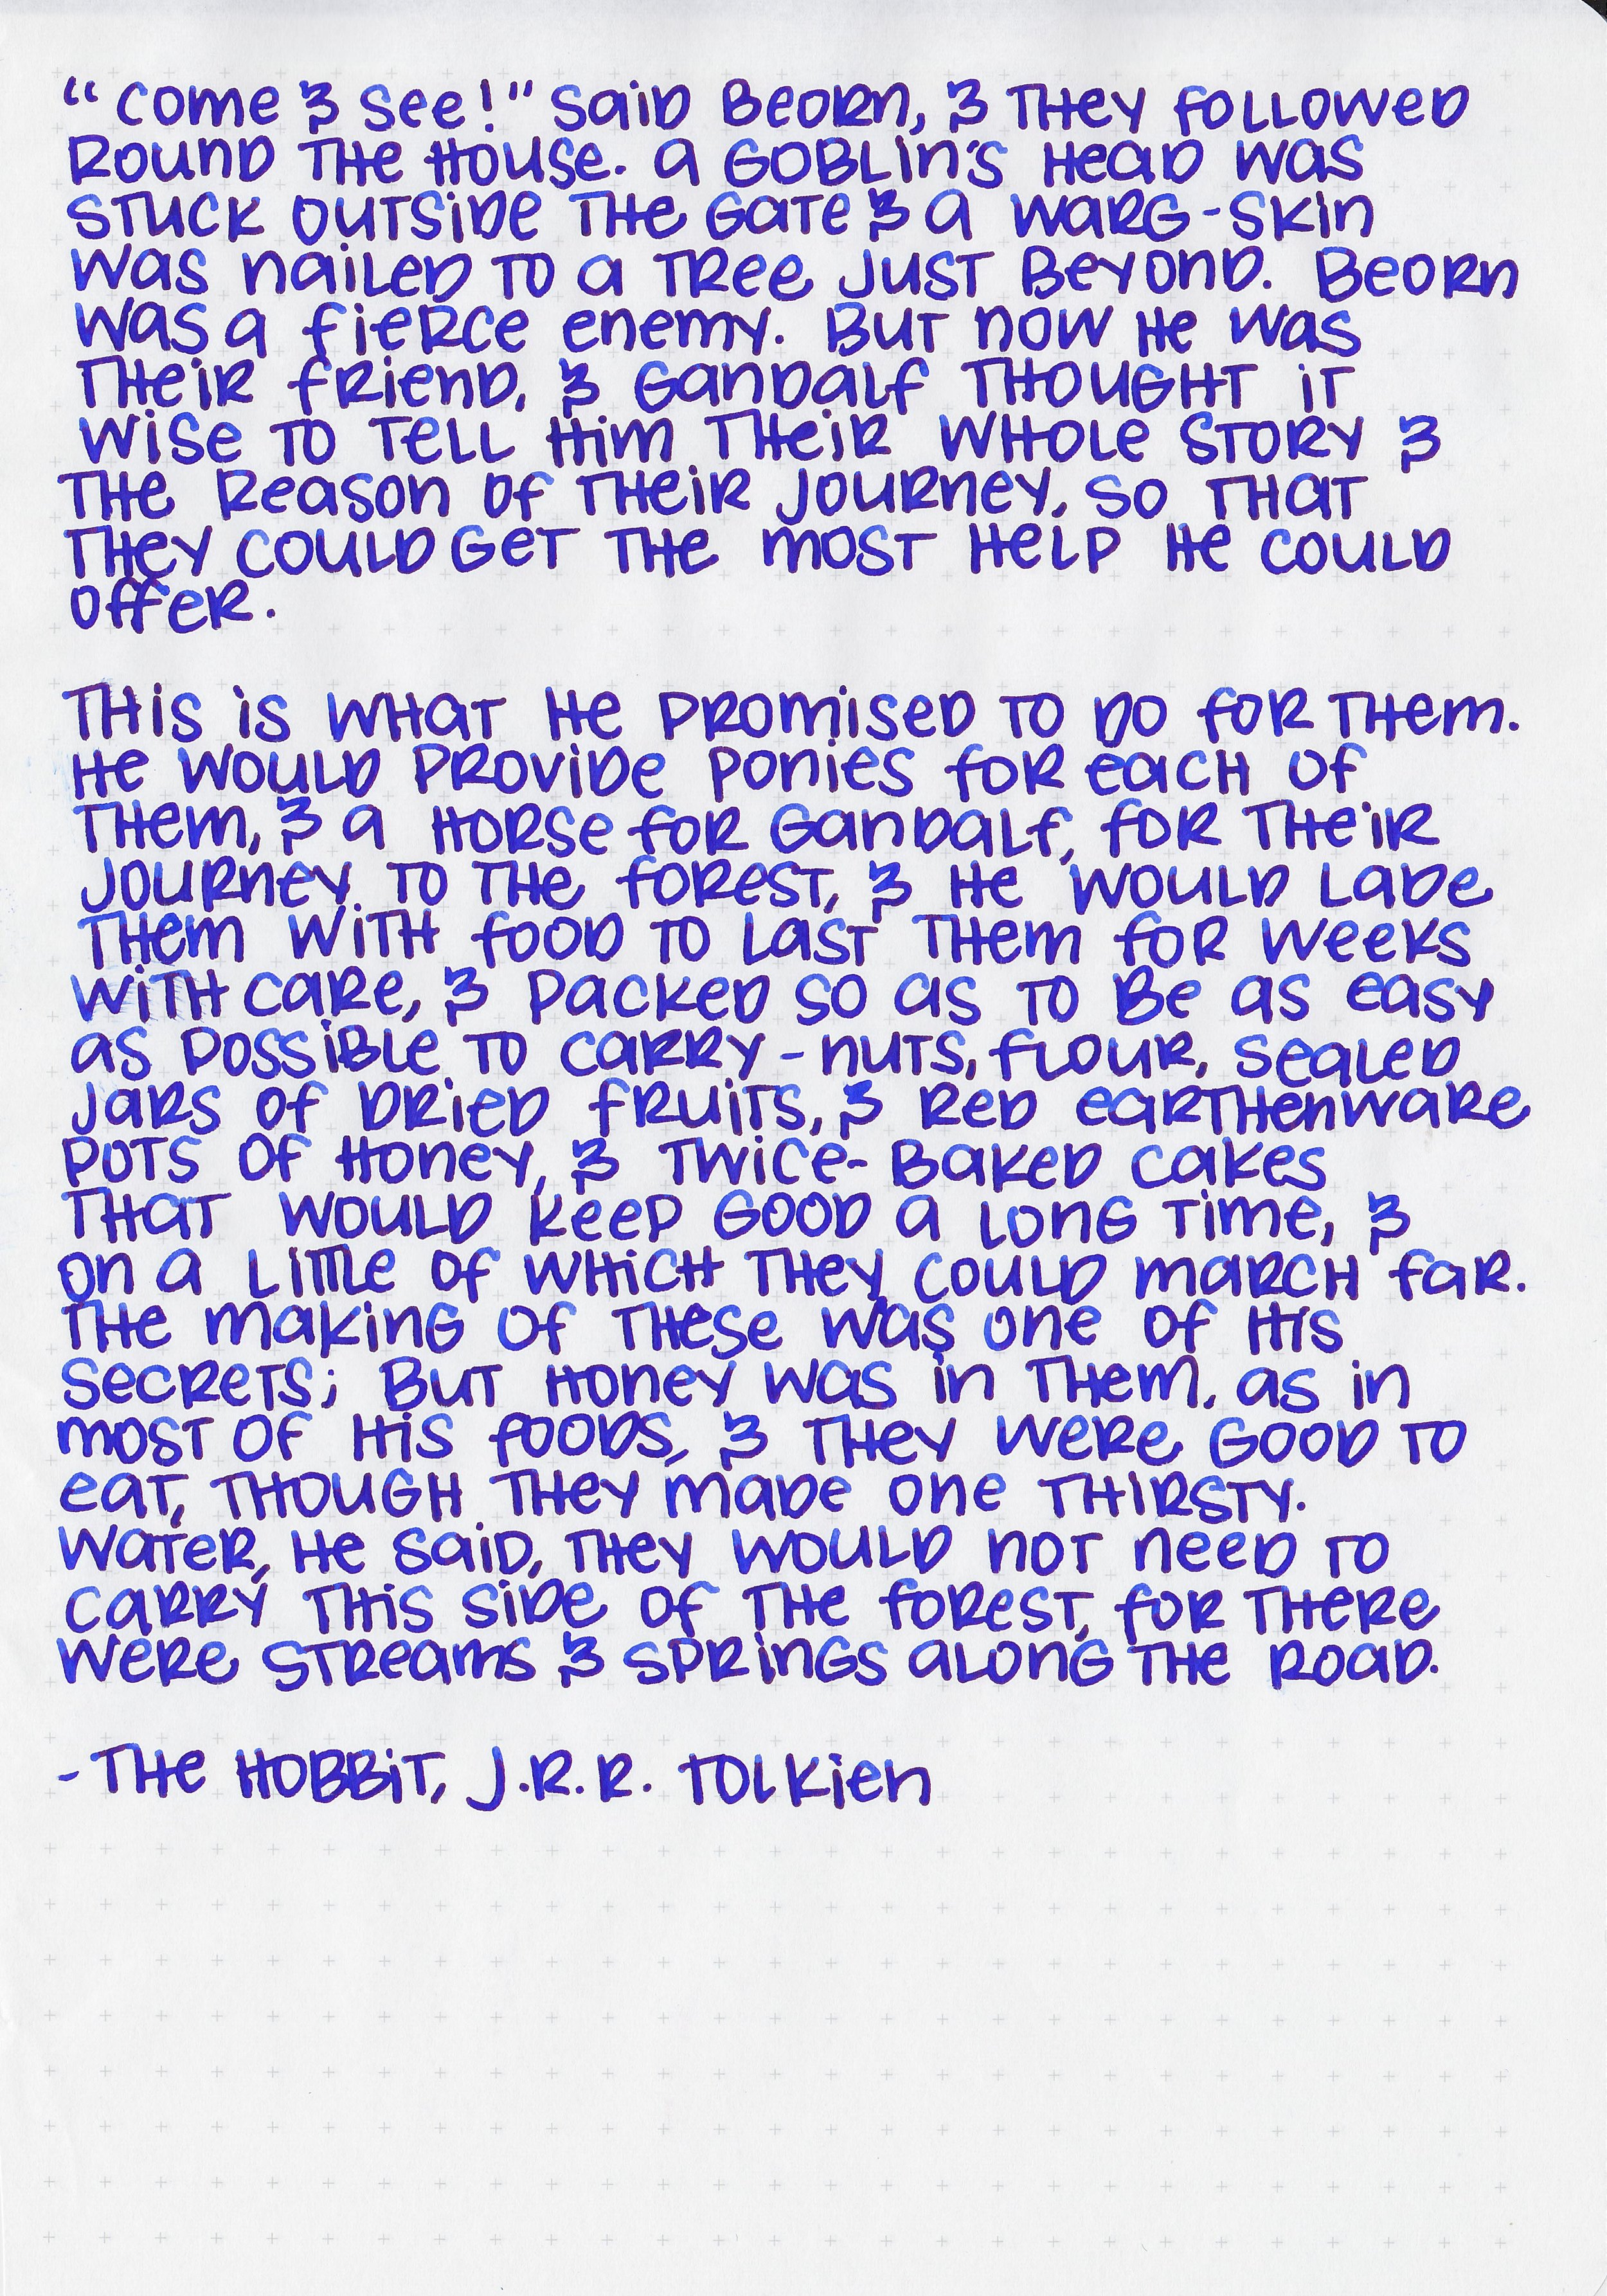 "Come & see!" said Beorn, & they followed
round the house. A goblin's head was
stuck outside the gate & a warg-skin
was nailed to a tree just beyond. Beorn
was a fierce enemy. But now he was
their friend, & Gandalf thought it
wise to tell him their whole story &
the reason of their journey, so that
they could get the most help he could
offer.

This is what he promised to do for them.
He would provide ponies for each of
them, & a horse for Gandalf, for their
journey to the forest, & he would lade
them with food to last them for weeks
with care, & packed so as to be as easy
as possible to carry - nuts, flour, sealed
jars of dried fruits, & red earthenware
pots of honey, & twice-baked cakes
that would keep good a long time, &
on a little of which they could march far.
The making of these was one of his
secrets; but honey was in them, as in
most of his foods, & they were good to
eat, though they made one thirsty.
Water, he said, they would not need to
carry this side of the forest, for there
were streams & springs along the road.

- The Hobbit, J.R.R. Tolkien